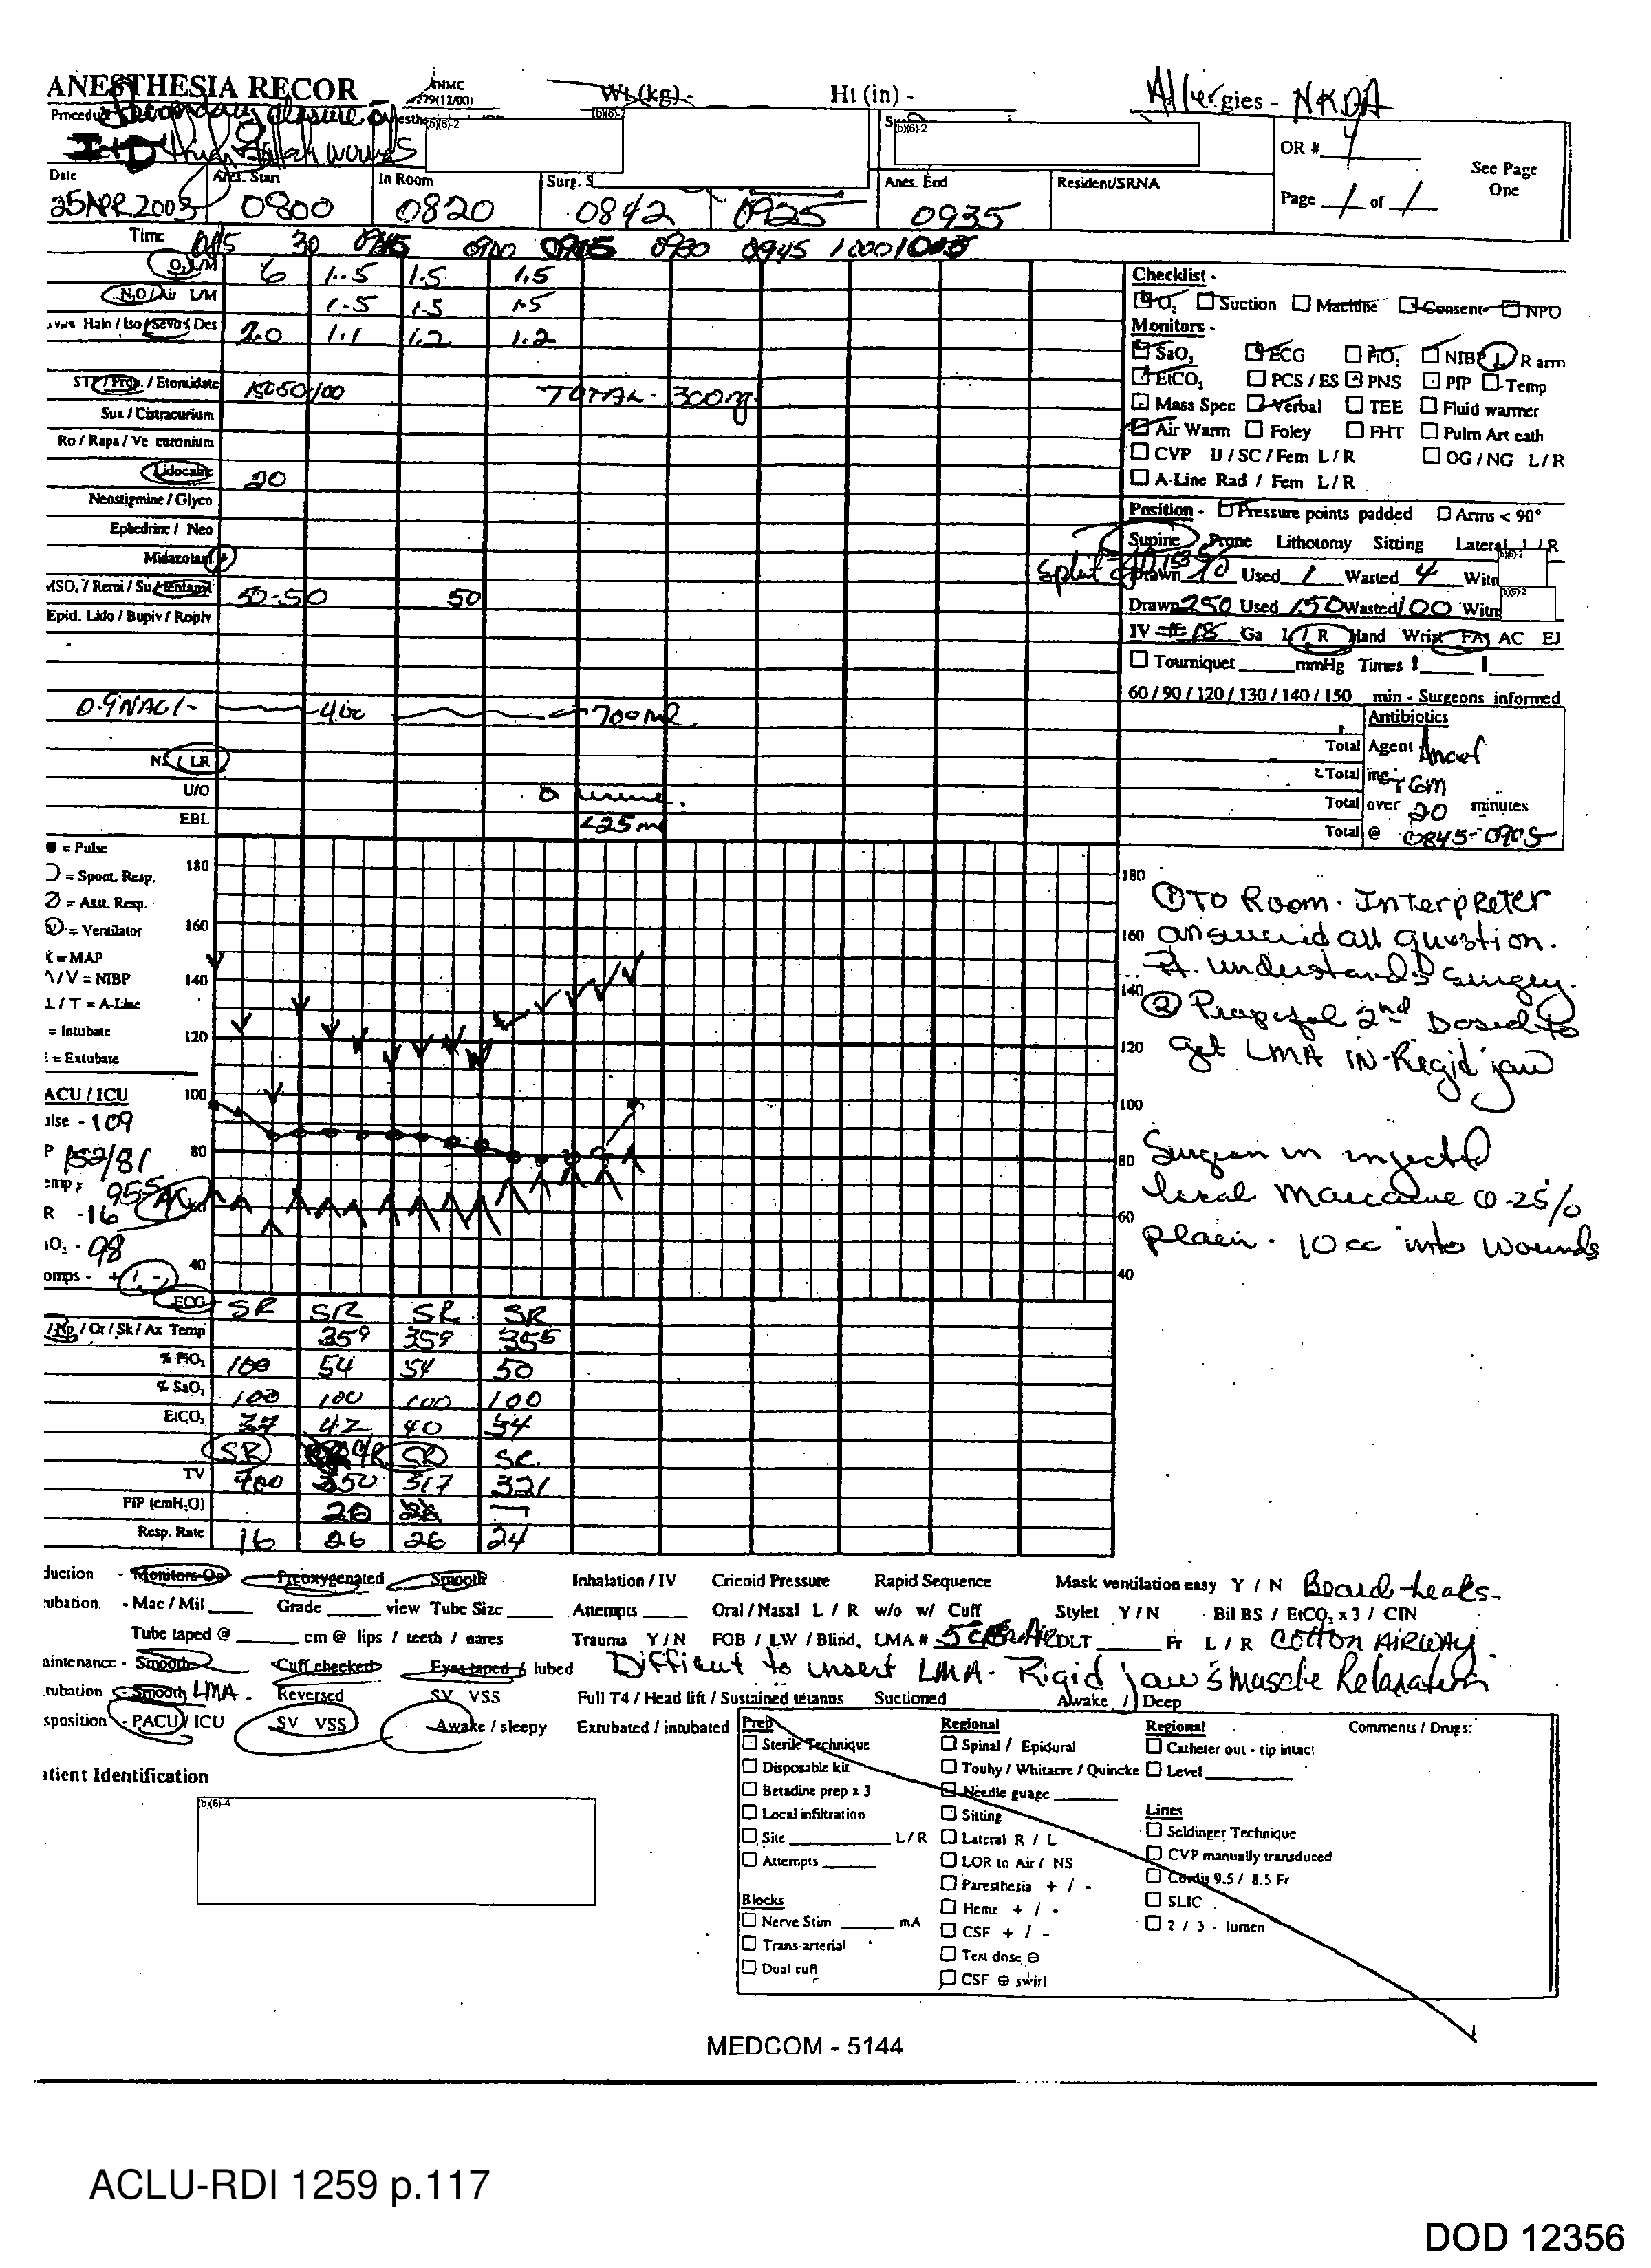 ANESTHESIA RECOR
NNMC
279(12/00)
Wt (kg) -
Ht (in) -
Allergies - NKDA
Procedure Secondary closure of
I+D thigh
(b)(6)-2
(b)(6)-2
(b)(6)-2
OR # 4
See Page One
Page 1 of 1
Date
Anes. Start
In Room
Surg. S
Anes. End
Resident/SRNA
25 APR 2003 0800 0820 0842 0925 0935
Time 30 0900 0915 0930 0945 1000 1015
O2 L/M 6 1.5 1.5 1.5
N2O / Air L/M 1.5 1.5 1.5
Halo / Iso / Sevo / Des 2.0 1.1 1.2 1.2
STP / Prop. / Etomidate 150 50/100 TOTAL - 300mg
Sux / Cistracurium
Ro / Rapa / Ve curonium
Lidocaine 20
Neostigmine / Glyco
Ephedrine / Neo
Midazolam
MSO4 / Remi / Su / Fentanyl 50-50 50
Epid. Lido / Bupiv / Ropiv
0.9 NACl - 400 700 ml
NS / LR
U/O urine.
EBL <25 ml
Checklist -
O2 Suction Machine Consent NPO
Monitors -
SaO2 ECG FiO2 NIBP L R arm
EtCO2 PCS / ES PNS PIP Temp
Mass Spec Verbal TEE Fluid warmer
Air Warm Foley FHT Pulm Art cath
CVP IJ / SC / Fem L / R OG / NG L / R
A-Line Rad / Fem L / R
Position - Pressure points padded Arms < 90°
Supine Prone Lithotomy Sitting Lateral L / R
Split
Drawn Used 1 Wasted 4 Witn
(b)(6)-2
Drawn 250 Used 150 Wasted 100 Witn
(b)(6)-2
IV # 18 Ga L / R Hand Wrist FA AC EJ
Tourniquet mmHg Times
60 / 90 / 120 / 130 / 140 / 150 min - Surgeons informed
Antibiotics
Total Agent Ancef
Total mg 1 Gm
Total over 20 minutes
Total @ 0845-0905
● = Pulse
= Spont. Resp.
= Asst. Resp.
= Ventilator
= MAP
Λ / V = NIBP
⊥ / T = A-Line
= Intubate
= Extubate
180 160 140 120 100 80 60 40
180 160 140 120 100 80 60 40
ACU / ICU
ulse - 109
P 152/81
emp: 955
R - 16
O2 - 98
omps - + / -
① TO Room. Interpreter
answered all question.
Pt. understands surgery.
② Propofol 2nd Dosed to
get LMA IN - Regid jaw
Surgeon injected
local Marcaine 0.25%
plain. 10 cc into wounds
ECG SR SR SR SR
/ Np / Or / Sk / Ax Temp 359 359 355
% FiO2 100 54 54 50
% SaO2 100 100 100 100
EtCO2 37 42 40 54
SR SR SR
TV 700 350 317 321
PIP (cmH2O) 20
Resp. Rate 16 26 26 24
duction - Monitors On Preoxygenated Smooth Inhalation / IV Cricoid Pressure Rapid Sequence Mask ventilation easy Y / N Beard-
ubation - Mac / Mil Grade view Tube Size Attempts Oral / Nasal L / R w/o w/ Cuff Stylet Y / N Bil BS / EtCO2 x 3 / CTN
Tube taped @ cm @ lips / teeth / nares Trauma Y / N FOB / LW / Blind, LMA # 5 DLT Fr L / R COTTON AIRWAY.
aintenance - Smooth Cuff checked Eyes taped / lubed Difficult to insert LMA - Rigid jaw s̄ muscle Relaxation
tubation - Smooth LMA. Reversed SV VSS Full T4 / Head lift / Sustained tetanus Suctioned Awake / Deep
sposition - PACU / ICU SV VSS Awake / sleepy Extubated / intubated
atient Identification
(b)(6)-4
Prep
Sterile Technique
Disposable kit
Betadine prep x 3
Local infiltration
Site L / R
Attempts
Blocks
Nerve Stim mA
Trans-arterial
Dual cuff
Regional
Spinal / Epidural
Touhy / Whitacre / Quincke
Needle guage
Sitting
Lateral R / L
LOR to Air / NS
Paresthesia + / -
Heme + / -
CSF + / -
Test dose ⊖
CSF ⊕ swirl
Regional
Catheter out - tip intact
Level
Lines
Seldinger Technique
CVP manually transduced
Cordis 9.5 / 8.5 Fr
SLIC
2 / 3 - lumen
Comments / Drugs:
MEDCOM - 5144
ACLU-RDI 1259 p.117
DOD 12356